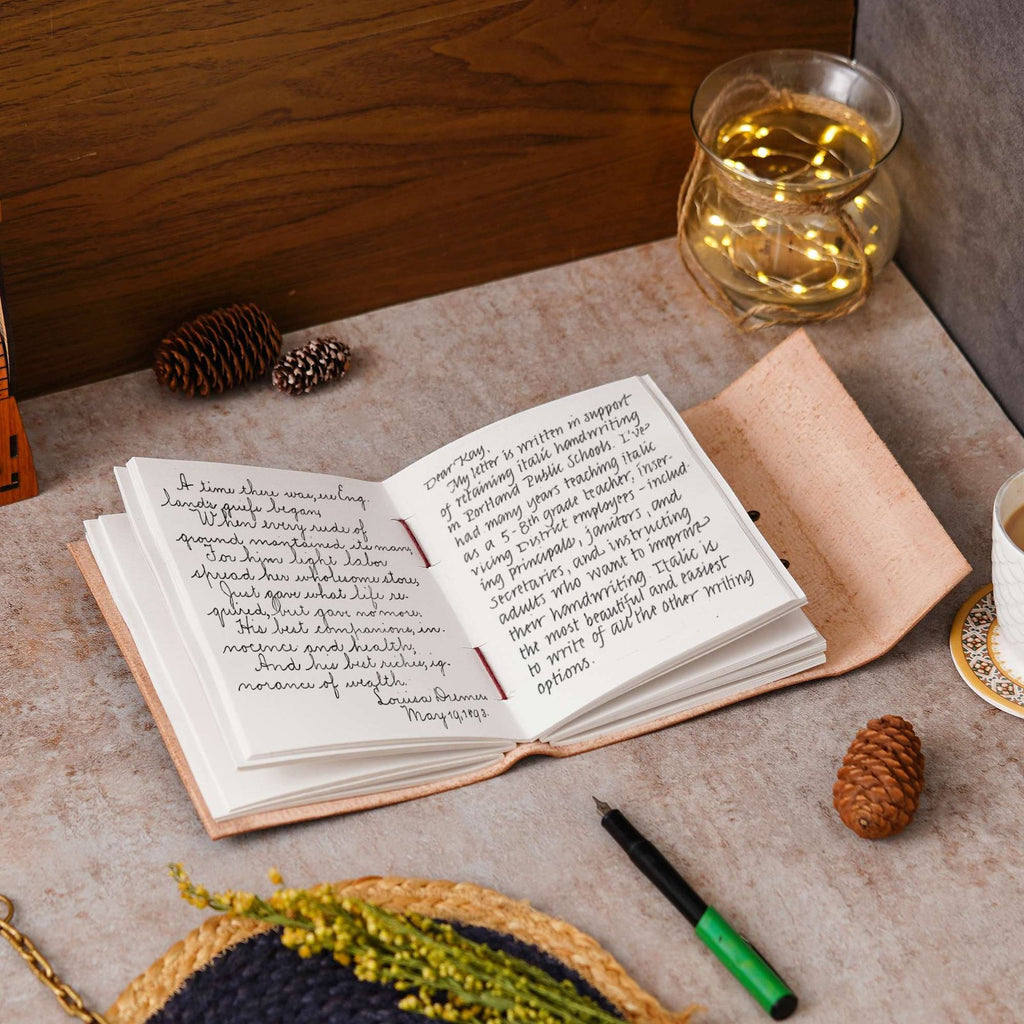 A time there was, ere Eng-
land's griefs began,
When every rude of
ground maintained its man;
For him light labor
spread her wholesome store,
Just gave what life re-
quired, but gave no more,
His best companions, in-
nocence and health;
And his best riches, ig-
norance of wealth.
Louisa
May 19, 1893.
Dear Kay,
My letter is written in support
of retaining italic handwriting
in Portland Public Schools. I've
had many years teaching italic
as a 5-8th grade teacher, inser-
vicing District employees - includ-
ing principals, janitors, and
secretaries, and instructing
adults who want to improve
their handwriting. Italic is
the most beautiful and easiest
to write of all the other writing
options.